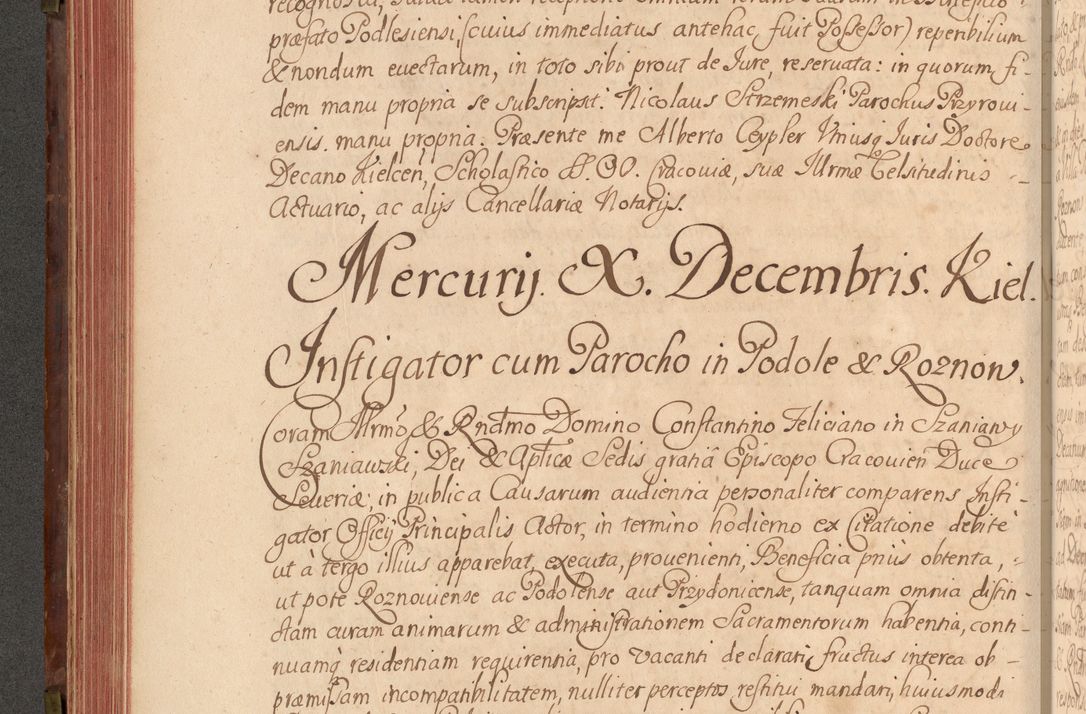 præfato Podlesiensi, (cuius immediatus antehac fuit Possessor) reperibilium
& nondum euectarum, in toto sibi prout de Jure, reseruata: in quorum fi-
dem manu propria se subscripsit. Nicolaus Strzemeski Parochus Przyroui-
ensis. manu propria. Præsente me Alberto Ceypler Vniusq Juris Doctore
Decano Kielcen, Scholastico Cracouiæ, suæ Illrmæ Celsitudinis
Actuario, ac alijs Cancellariæ Notarijs.
Mercurij. X. Decembris. Kiel.
Instigator cum Parocho in Podole & Roznow.
Coram Illrmo, & Rndmo Domino Constantino Feliciano in Szaniawy
Szaniawski, Dei & Aplicæ Sedis gratiâ Episcopo Cracouien Duce
Seueriæ; in publica Causarum audientia personaliter comparens Insti-
gator Officij Principalis Actor, in termino hodierno ex Citatione debitè
ut à tergo illius apparebat, executa, prouenienti, Beneficia priùs obtenta,
utpote Roznouiense ac Podolense aut Przydonicense, tanquam omnia distin-
ctam curam animarum & administrationem Sacramentorum habentia, conti-
nuamq residentiam requirentia, pro vacanti declarari, fructus interea ob-
præmissam incompatibilitatem, nulliter perceptos restitui mandari, huiusmodi